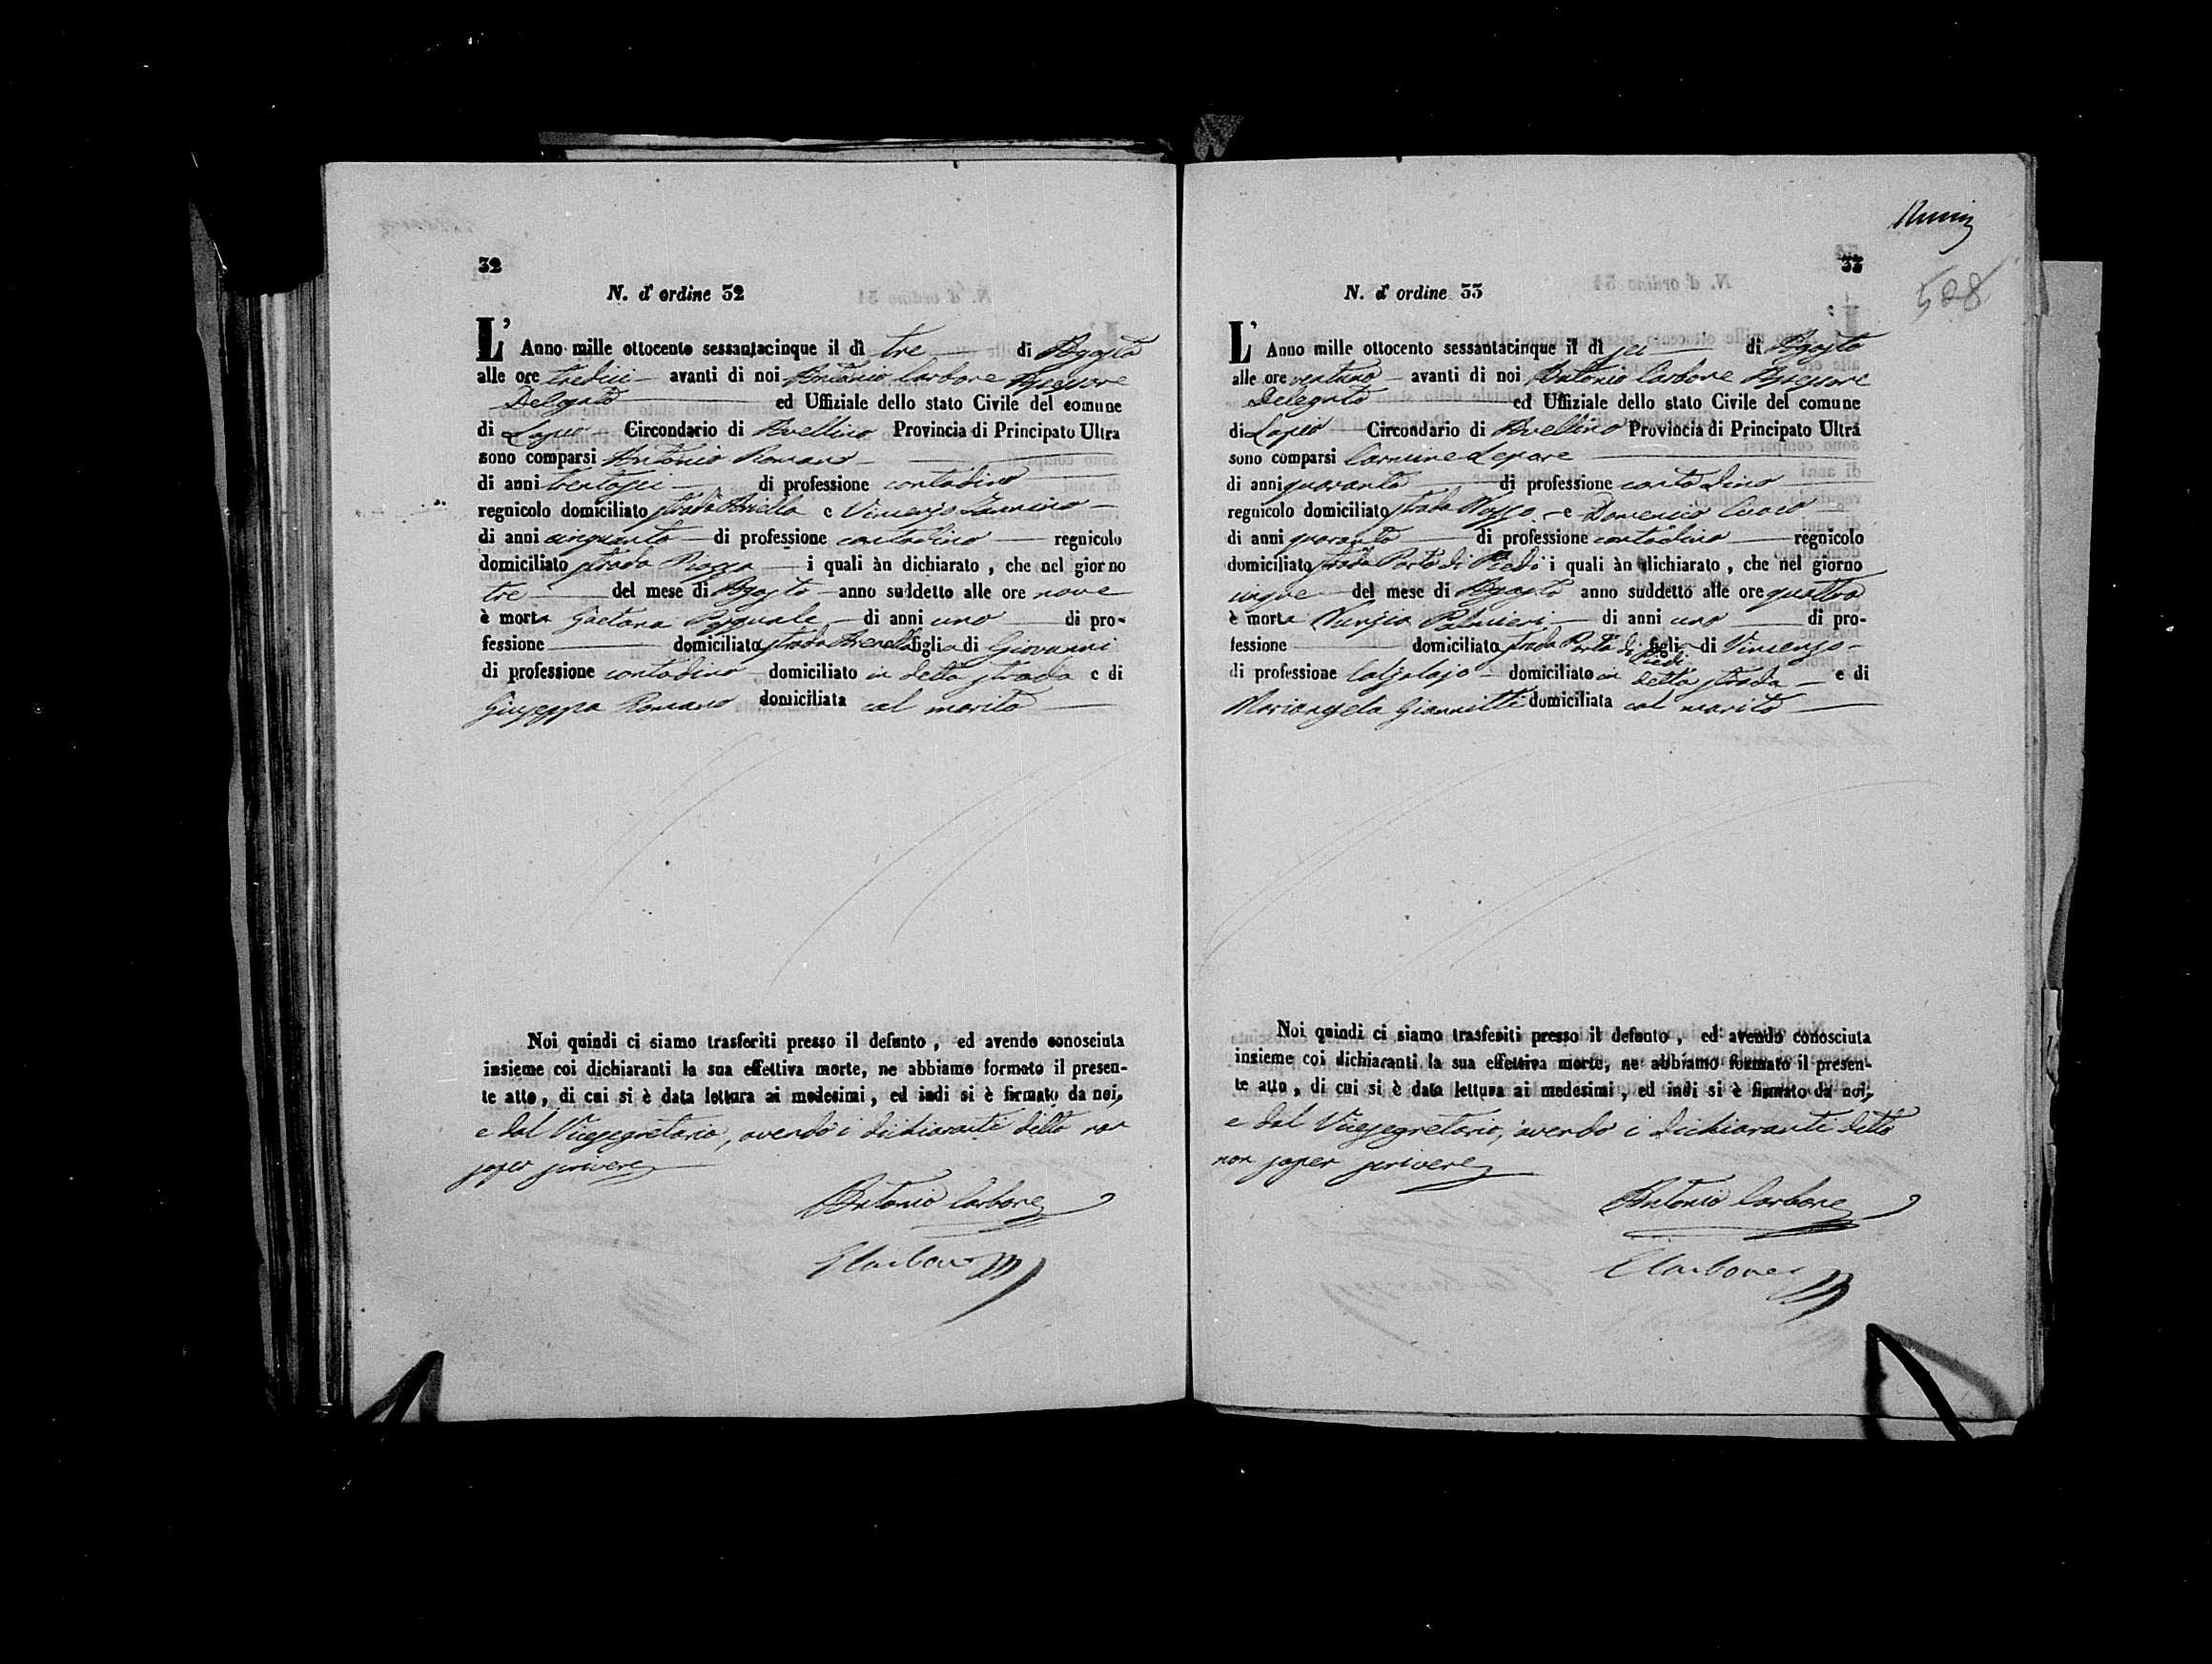 32
N. d' ordine 32
L' Anno mille ottocento sessantacinque il dì tre di Agosto
alle ore tredici avanti di noi Antonio Carbone Assessore
Delegato ed Uffiziale dello stato Civile del comune
di Lapio Circondario di Avellino Provincia di Principato Ultra
sono comparsi Antonio Romano
di anni trentasei di professione contadino
regnicolo domiciliato strada e Vincenzo
di anni cinquanta di professione contadino regnicolo
domiciliato strada Piazza i quali àn dichiarato, che nel giorno
tre del mese di Agosto anno suddetto alle ore nove
è morta Gaetana Pasquale di anni uno di pro-
fessione domiciliata strada figlia di Giovanni
di professione contadino domiciliato in detta strada e di
Giuseppa Romano domiciliata col marito
Noi quindi ci siamo trasferiti presso il defunto, ed avendo conosciuta
insieme coi dichiaranti la sua effettiva morte, ne abbiamo formato il presen-
te atto, di cui si è data lettura ai medesimi, ed indi si è firmato da noi,
e dal Vicesegretario, avendo i dichiaranti detto non
saper scrivere
Antonio Carbone
Carbone
33
508
N. d' ordine 33
L' Anno mille ottocento sessantacinque il dì sei di Agosto
alle ore ventuno avanti di noi Antonio Carbone Assessore
Delegato ed Uffiziale dello stato Civile del comune
di Lapio Circondario di Avellino Provincia di Principato Ultra
sono comparsi Carmine Lepore
di anni quaranta di professione contadino
regnicolo domiciliato strada e Domenico Cuoco
di anni quaranta di professione contadino regnicolo
domiciliato strada Porta di Piedi i quali àn dichiarato, che nel giorno
cinque del mese di Agosto anno suddetto alle ore quattro
è morta Nunzia Palmieri di anni uno di pro-
fessione domiciliata strada Porta di Piedi figlia di Vincenzo
di professione Calzolajo domiciliato in detta strada e di
Mariangela Giannitti domiciliata col marito
Noi quindi ci siamo trasferiti presso il defunto, ed avendo conosciuta
insieme coi dichiaranti la sua effettiva morte, ne abbiamo formato il presen-
te atto, di cui si è data lettura ai medesimi, ed indi si è firmato da noi,
e dal Vicesegretario, avendo i dichiaranti detto
non saper scrivere
Antonio Carbone
Carbone